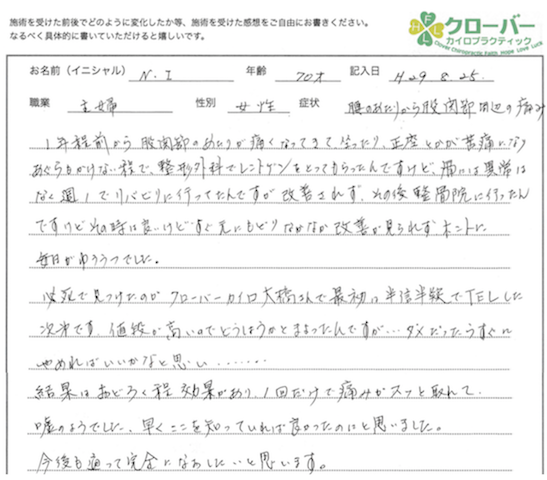 施術を受けた前後でどのように変化したか等、施術を受けた感想をご自由にお書きください。
なるべく具体的に書いていただけると嬉しいです。
クローバー
カイロプラクティック
Clover Chiropractic Faith Hope Love Luck
お名前(イニシャル) N.I 年齢 70才 記入日 H29 8.25.
職業 主婦 性別 女性 症状 腰のあたりから股関節周辺の痛み
1年程前から股関節のあたりが痛くなってきて、坐ったり、正座とかが苦痛になり
あぐらもかけない程で、整形外科でレントゲンをとってもらったんですけど、骨には異常は
なく週1でリハビリに行ってたんですが改善されず、その後整骨院に行ったん
ですけどその時は良いけどすぐ元にもどりなかなか改善が見られず、ホントに
毎日がゆううつでした。
必死で見つけたのがクローバーカイロ大橋さんで最初は半信半疑でTELした
次第です。値段が高いのでどうしようかとまよったんですが…ダメだったらすぐに
やめればいいかなと思い.......
結果はおどろく程効果があり、1回だけで痛みがスッと取れて、
嘘のようでした。早くここを知っていれば良かったのにと思いました。
今後も通って完全になおしたいと思います。